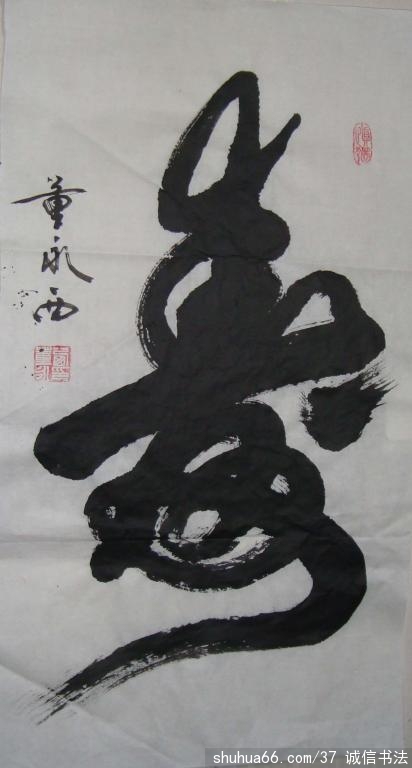 壽
董永西
shuhua66.com/37 诚信书法